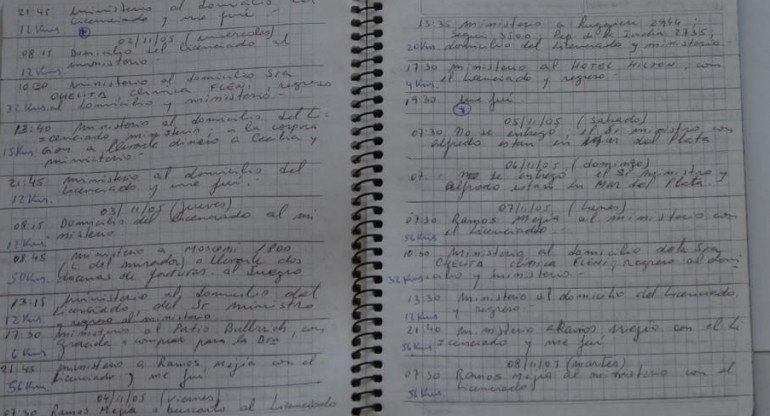 21:45 ministerio al domicilio del
12 Kms. Licenciado y me fui.
02/11/05 (miercoles)
08:15 Domicilio del Licenciado al
12 Kms. ministerio.-
10:30 ministerio al domicilio Sra
OHELITA clinica FLENI, regreso
32 Kms al domicilio y ministerio.-
13:40 Ministerio al domicilio del Li-
cenciado, ministerio, a la corpora
15 Kms. cion a llevarle dinero a Cecilia y
ministerio.-
21:45 ministerio al domicilio del
12 Kms. Licenciado y me fui.
03/11/05 (jueves)
08:15 Domicilio del Licenciado al mi
12 Kms. nisterio
08:45 ministerio a Mosconi
(
) a llevarle dos
50 Kms docenas de facturas al Suegro
13:15 ministerio al domicilio del
Licenciado del Sr ministro
12 Kms y regreso al ministerio.
17:30 ministerio al Patio Bullrich, con
6 Kms. a comprar para la
21:45 ministerio a Ramos Mejia con el
56 Kms Licenciado y me fui
04/11/05 (viernes)
07:30 Ramos Mejia a buscarlo al Licenciado
13:35 ministerio a Ruggieri 2944;
Segui 3500, Rep. de la India
20 Kms. domicilio del Licenciado y ministerio.-
17:30 ministerio al HOTEL HILTON, con
4 Kms. el Licenciado y regreso.-
19:30 me fui.
05/11/05 (sabado)
07:30 No se trabajo, el Sr ministro con
Alfredo estan en Mar del Plata
06/11/05 (domingo)
07 - No se trabajo el Sr ministro y
Alfredo estan en Mar del Plata.
07/11/05 (lunes)
07:30 Ramos Mejia al ministerio con
56 Kms el Licenciado.-
10:30 Ministerio al domicilio de la Sra.
OHELITA clinica FLENI, regreso al domi-
32 Kms cilio y ministerio.
13:30 ministerio al domicilio del Licenciado,
12 Kms. y regreso.-
21:40 ministerio a Ramos Mejia con el Li
56 Kms. cenciado y me fui
08/11/05 (martes)
07:30 Ramos Mejia al ministerio con el
56 Kms. Licenciado